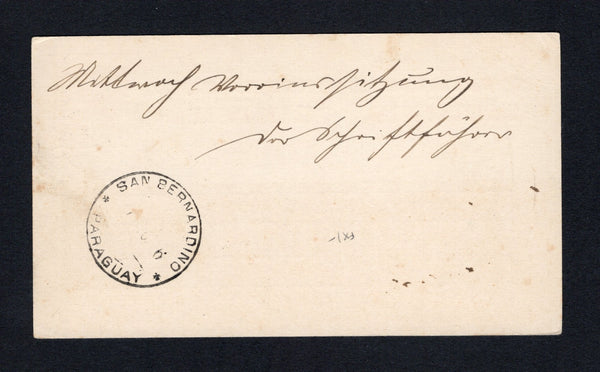 Mittwoch Vereinssitzung
Der Schriftführer
* SAN BERNARDINO *
PARAGUAY